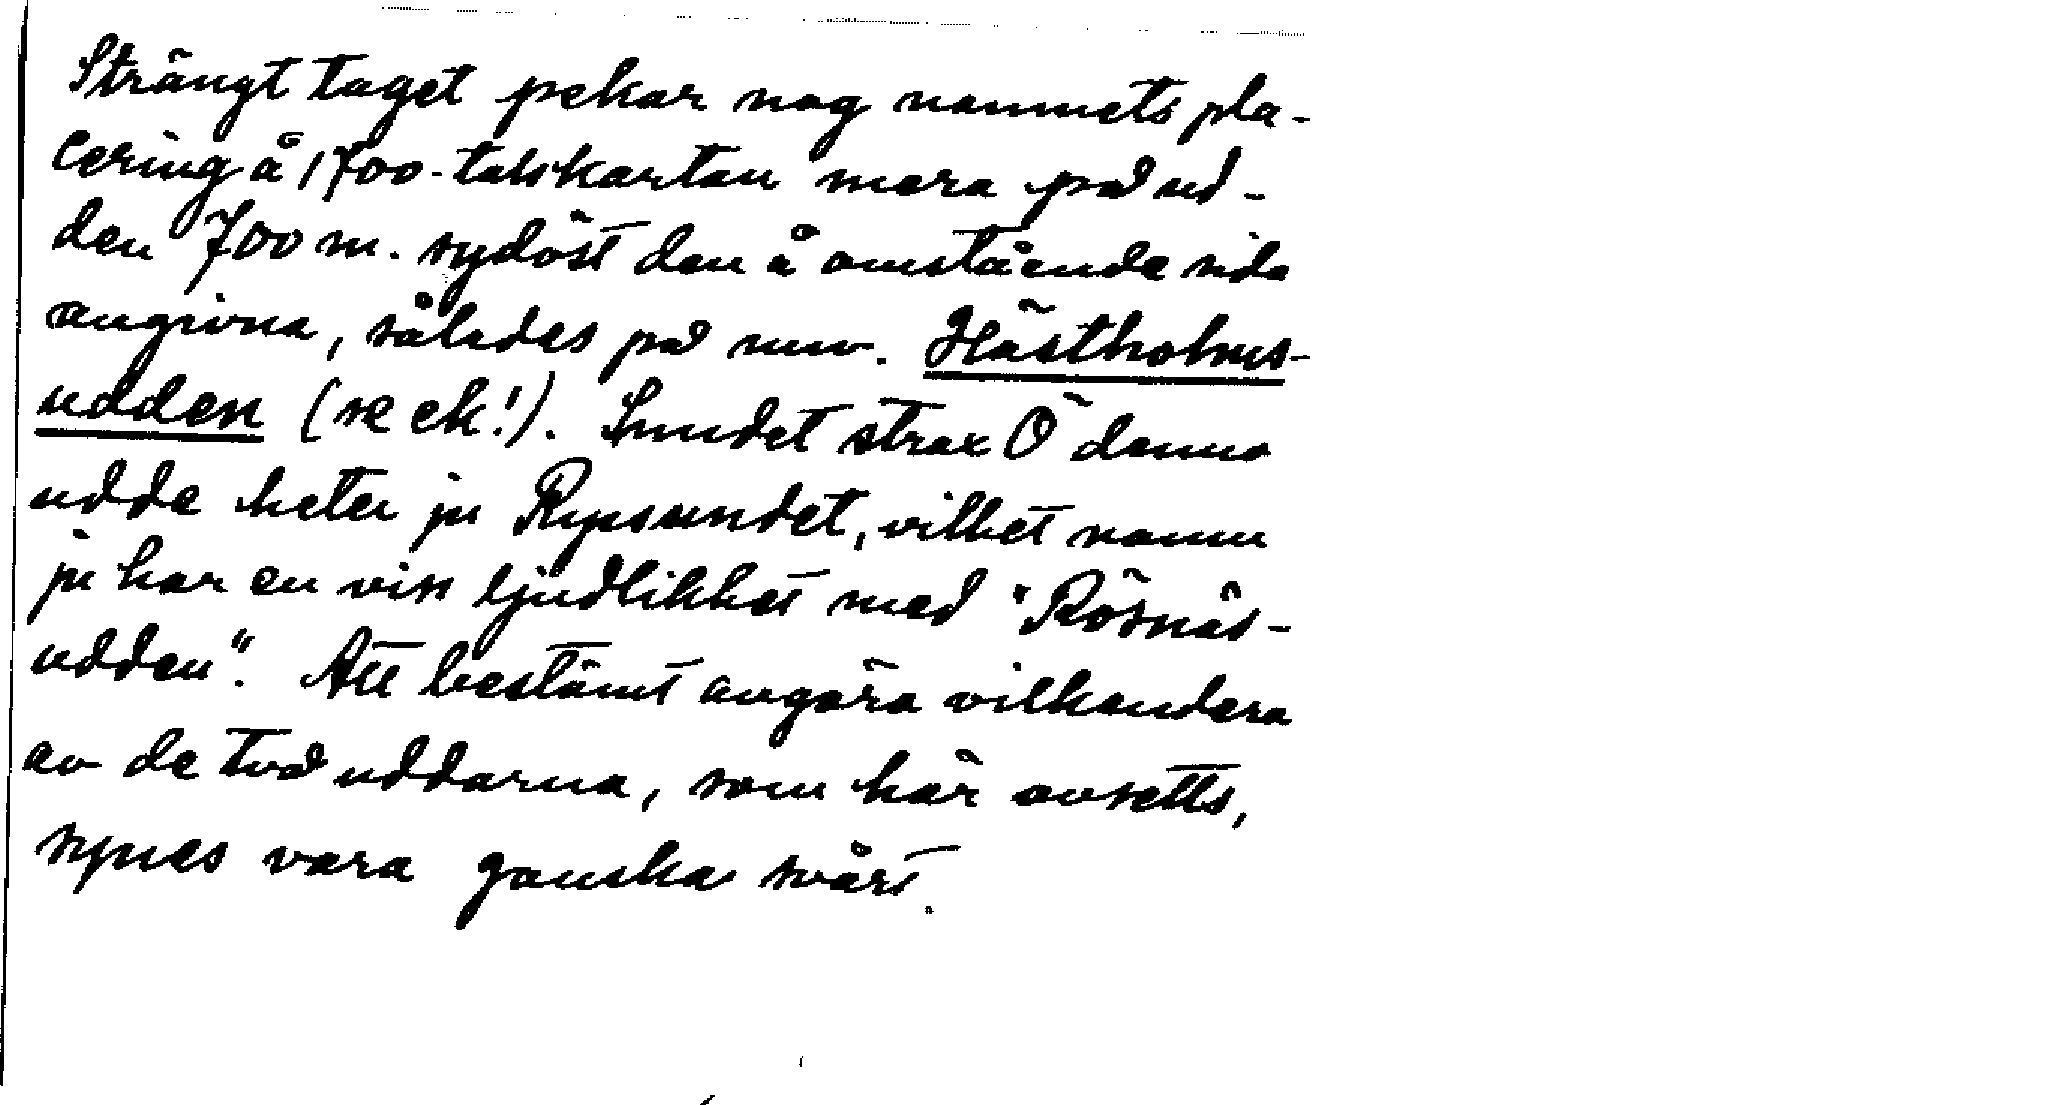 Strängt taget pekar nog namnets pla-
cering å 1700-talskartan mera på ud-
den 700 m. sydöst den å omstående sida
angivna, således på nuv. Hästholms-
udden (se ek!). Sundet strax Ö denna
udde heter ju Rysundet, vilket namn
ju har en viss ljudlikhet med "Rösnäs-
udden". Att bestämt avgöra vilkendera
av de två uddarna, som här avsetts,
synes vara ganska svårt.